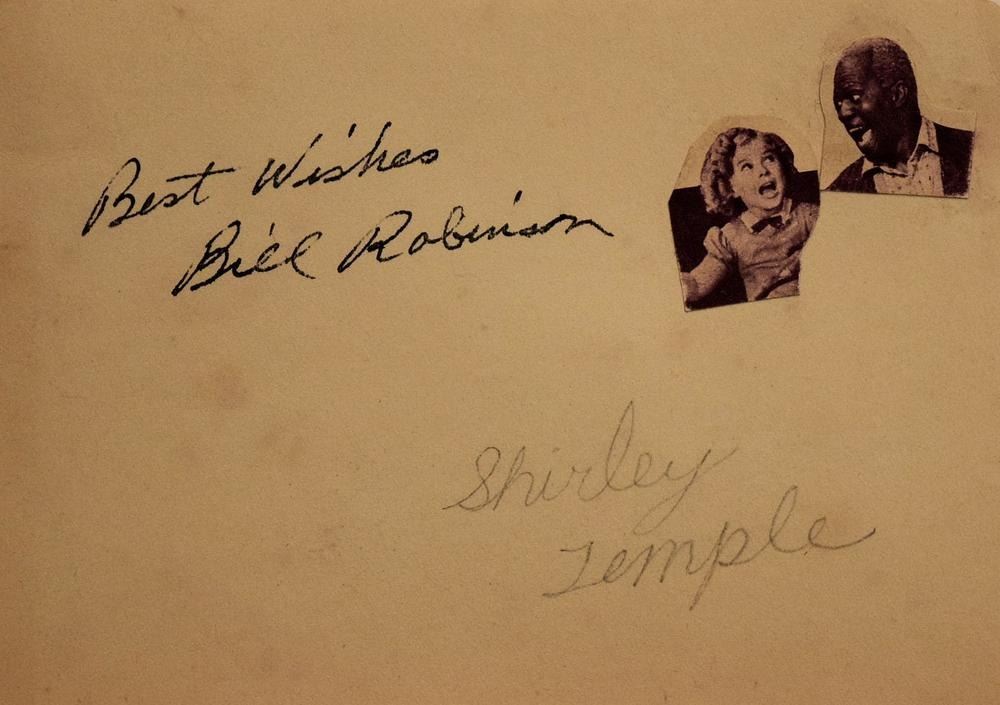 Best Wishes
Bill Robinson
Shirley
Temple